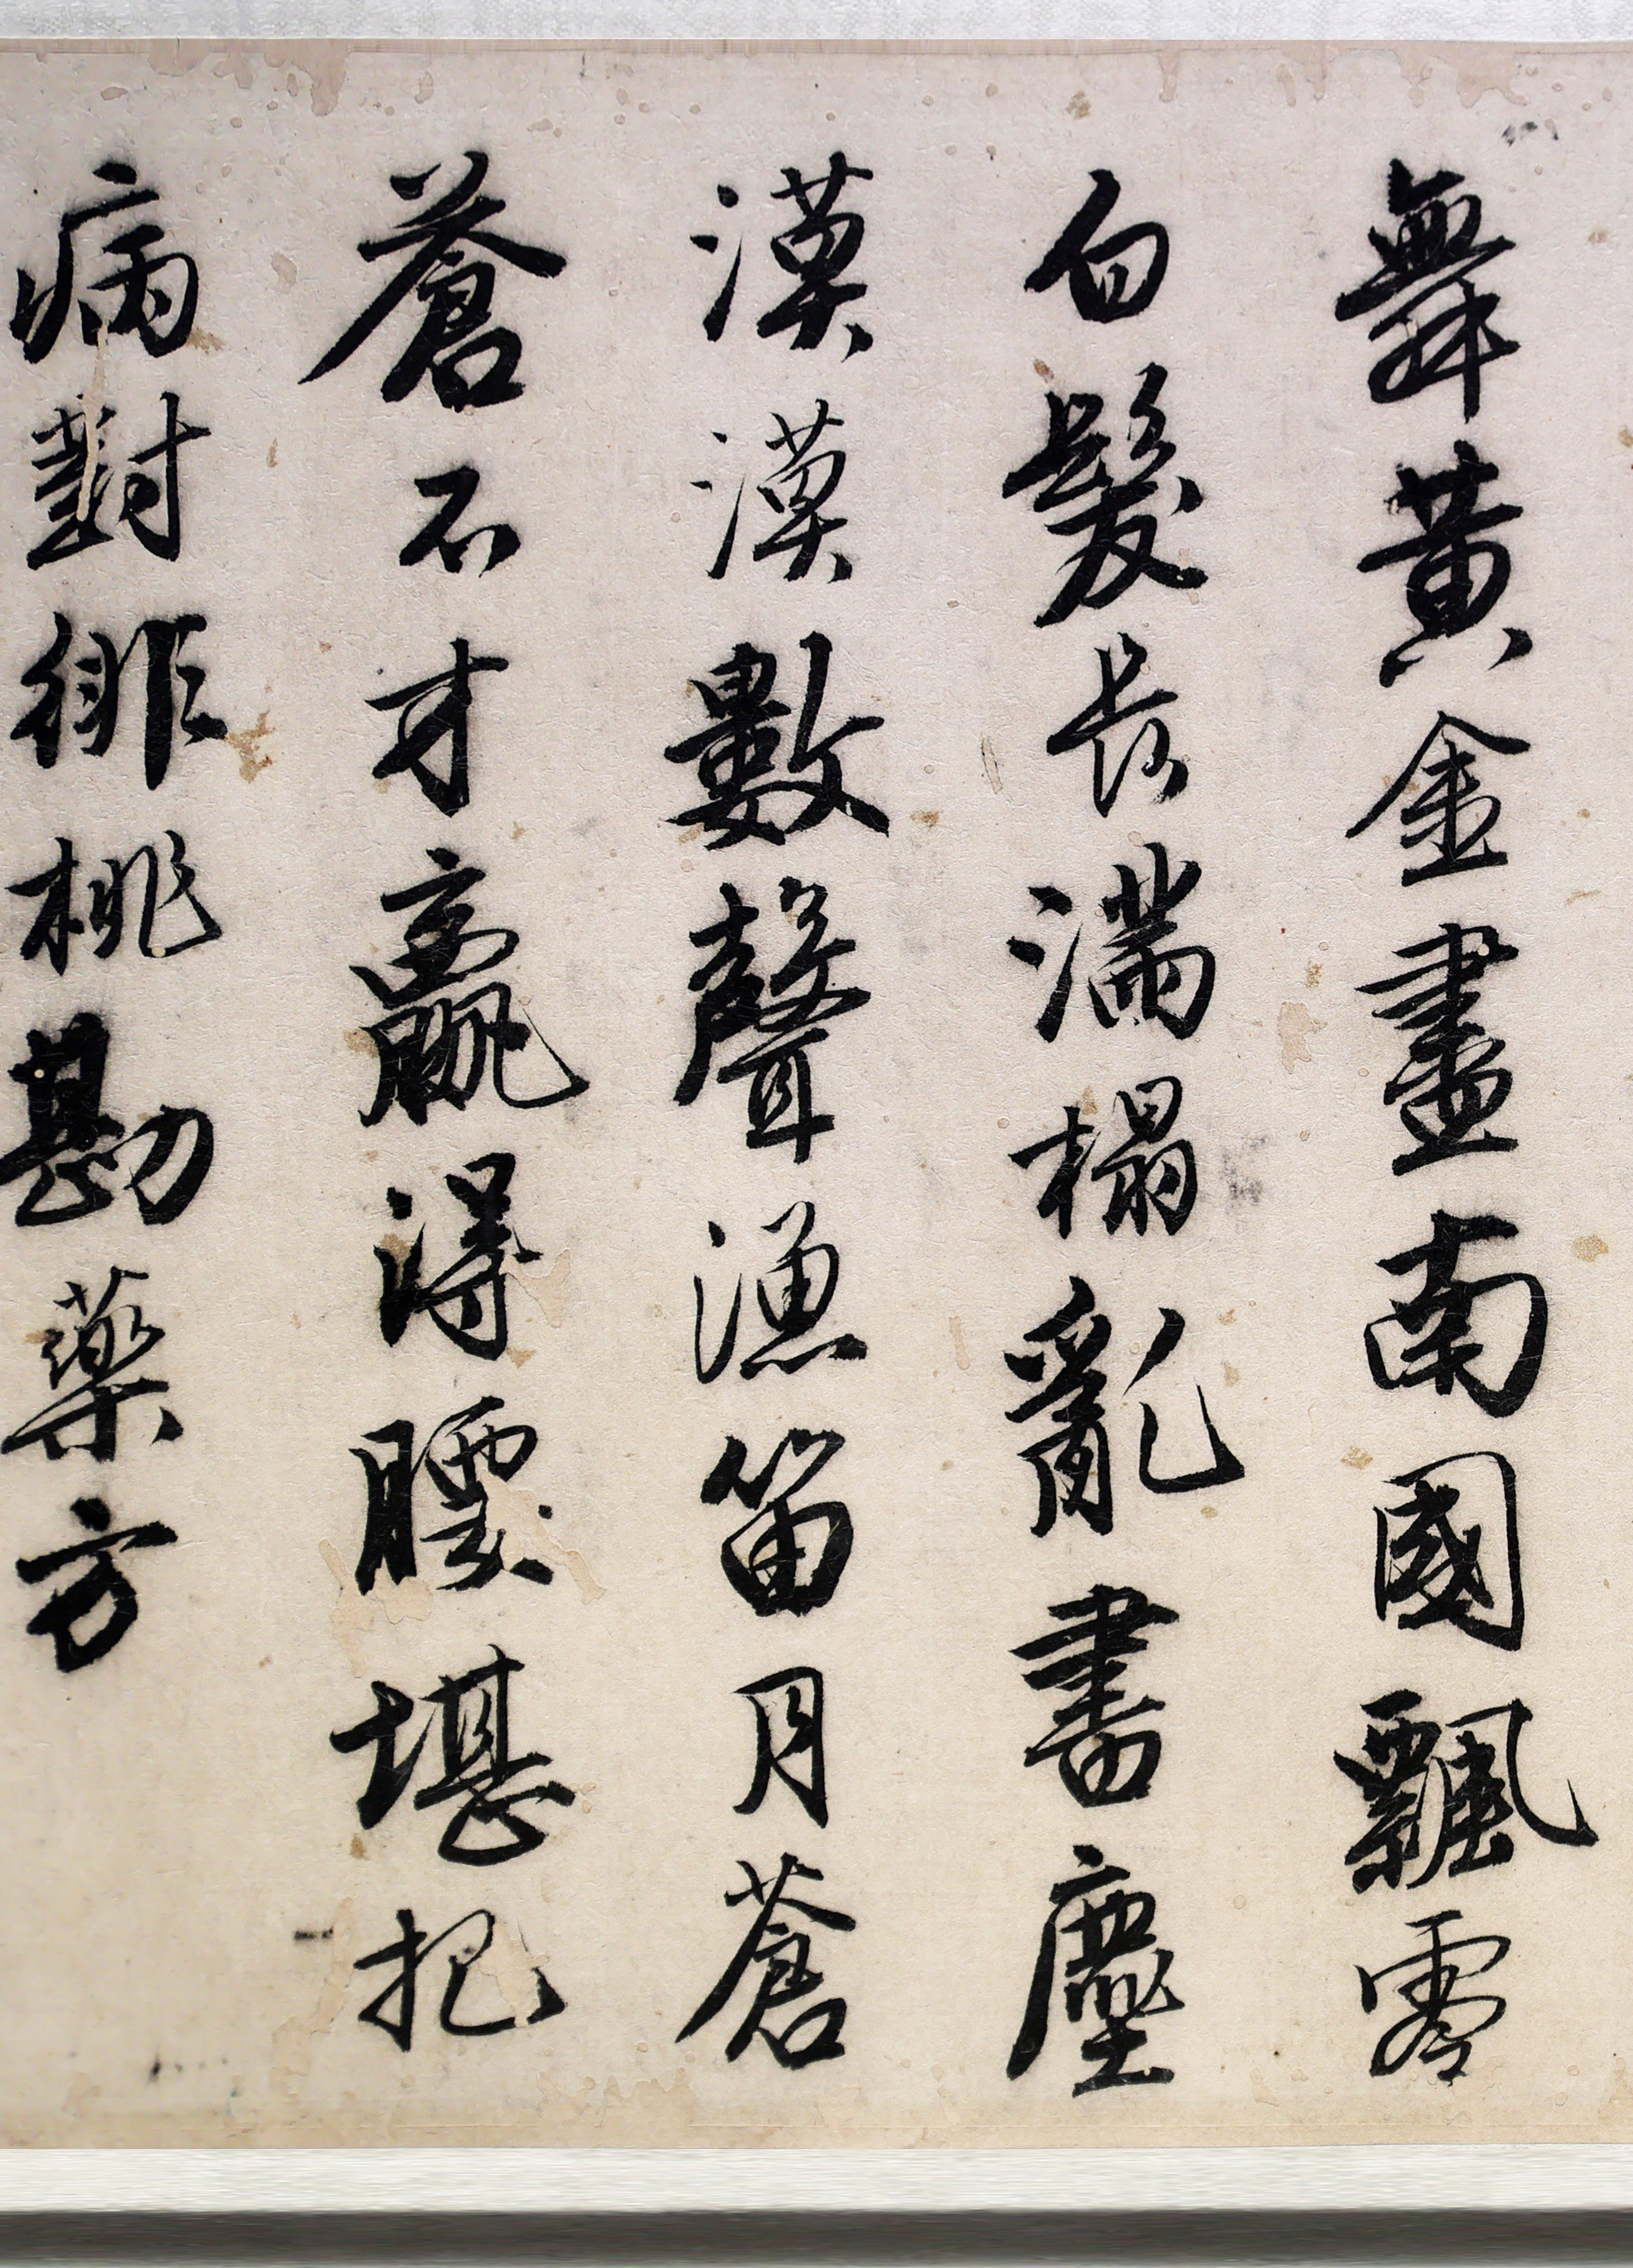 舞黄金盡南國飄零
白髮長滿榻亂書塵
漠漠數聲漁笛月蒼
蒼不才贏得腰堪把
病對緋桃勘藥方